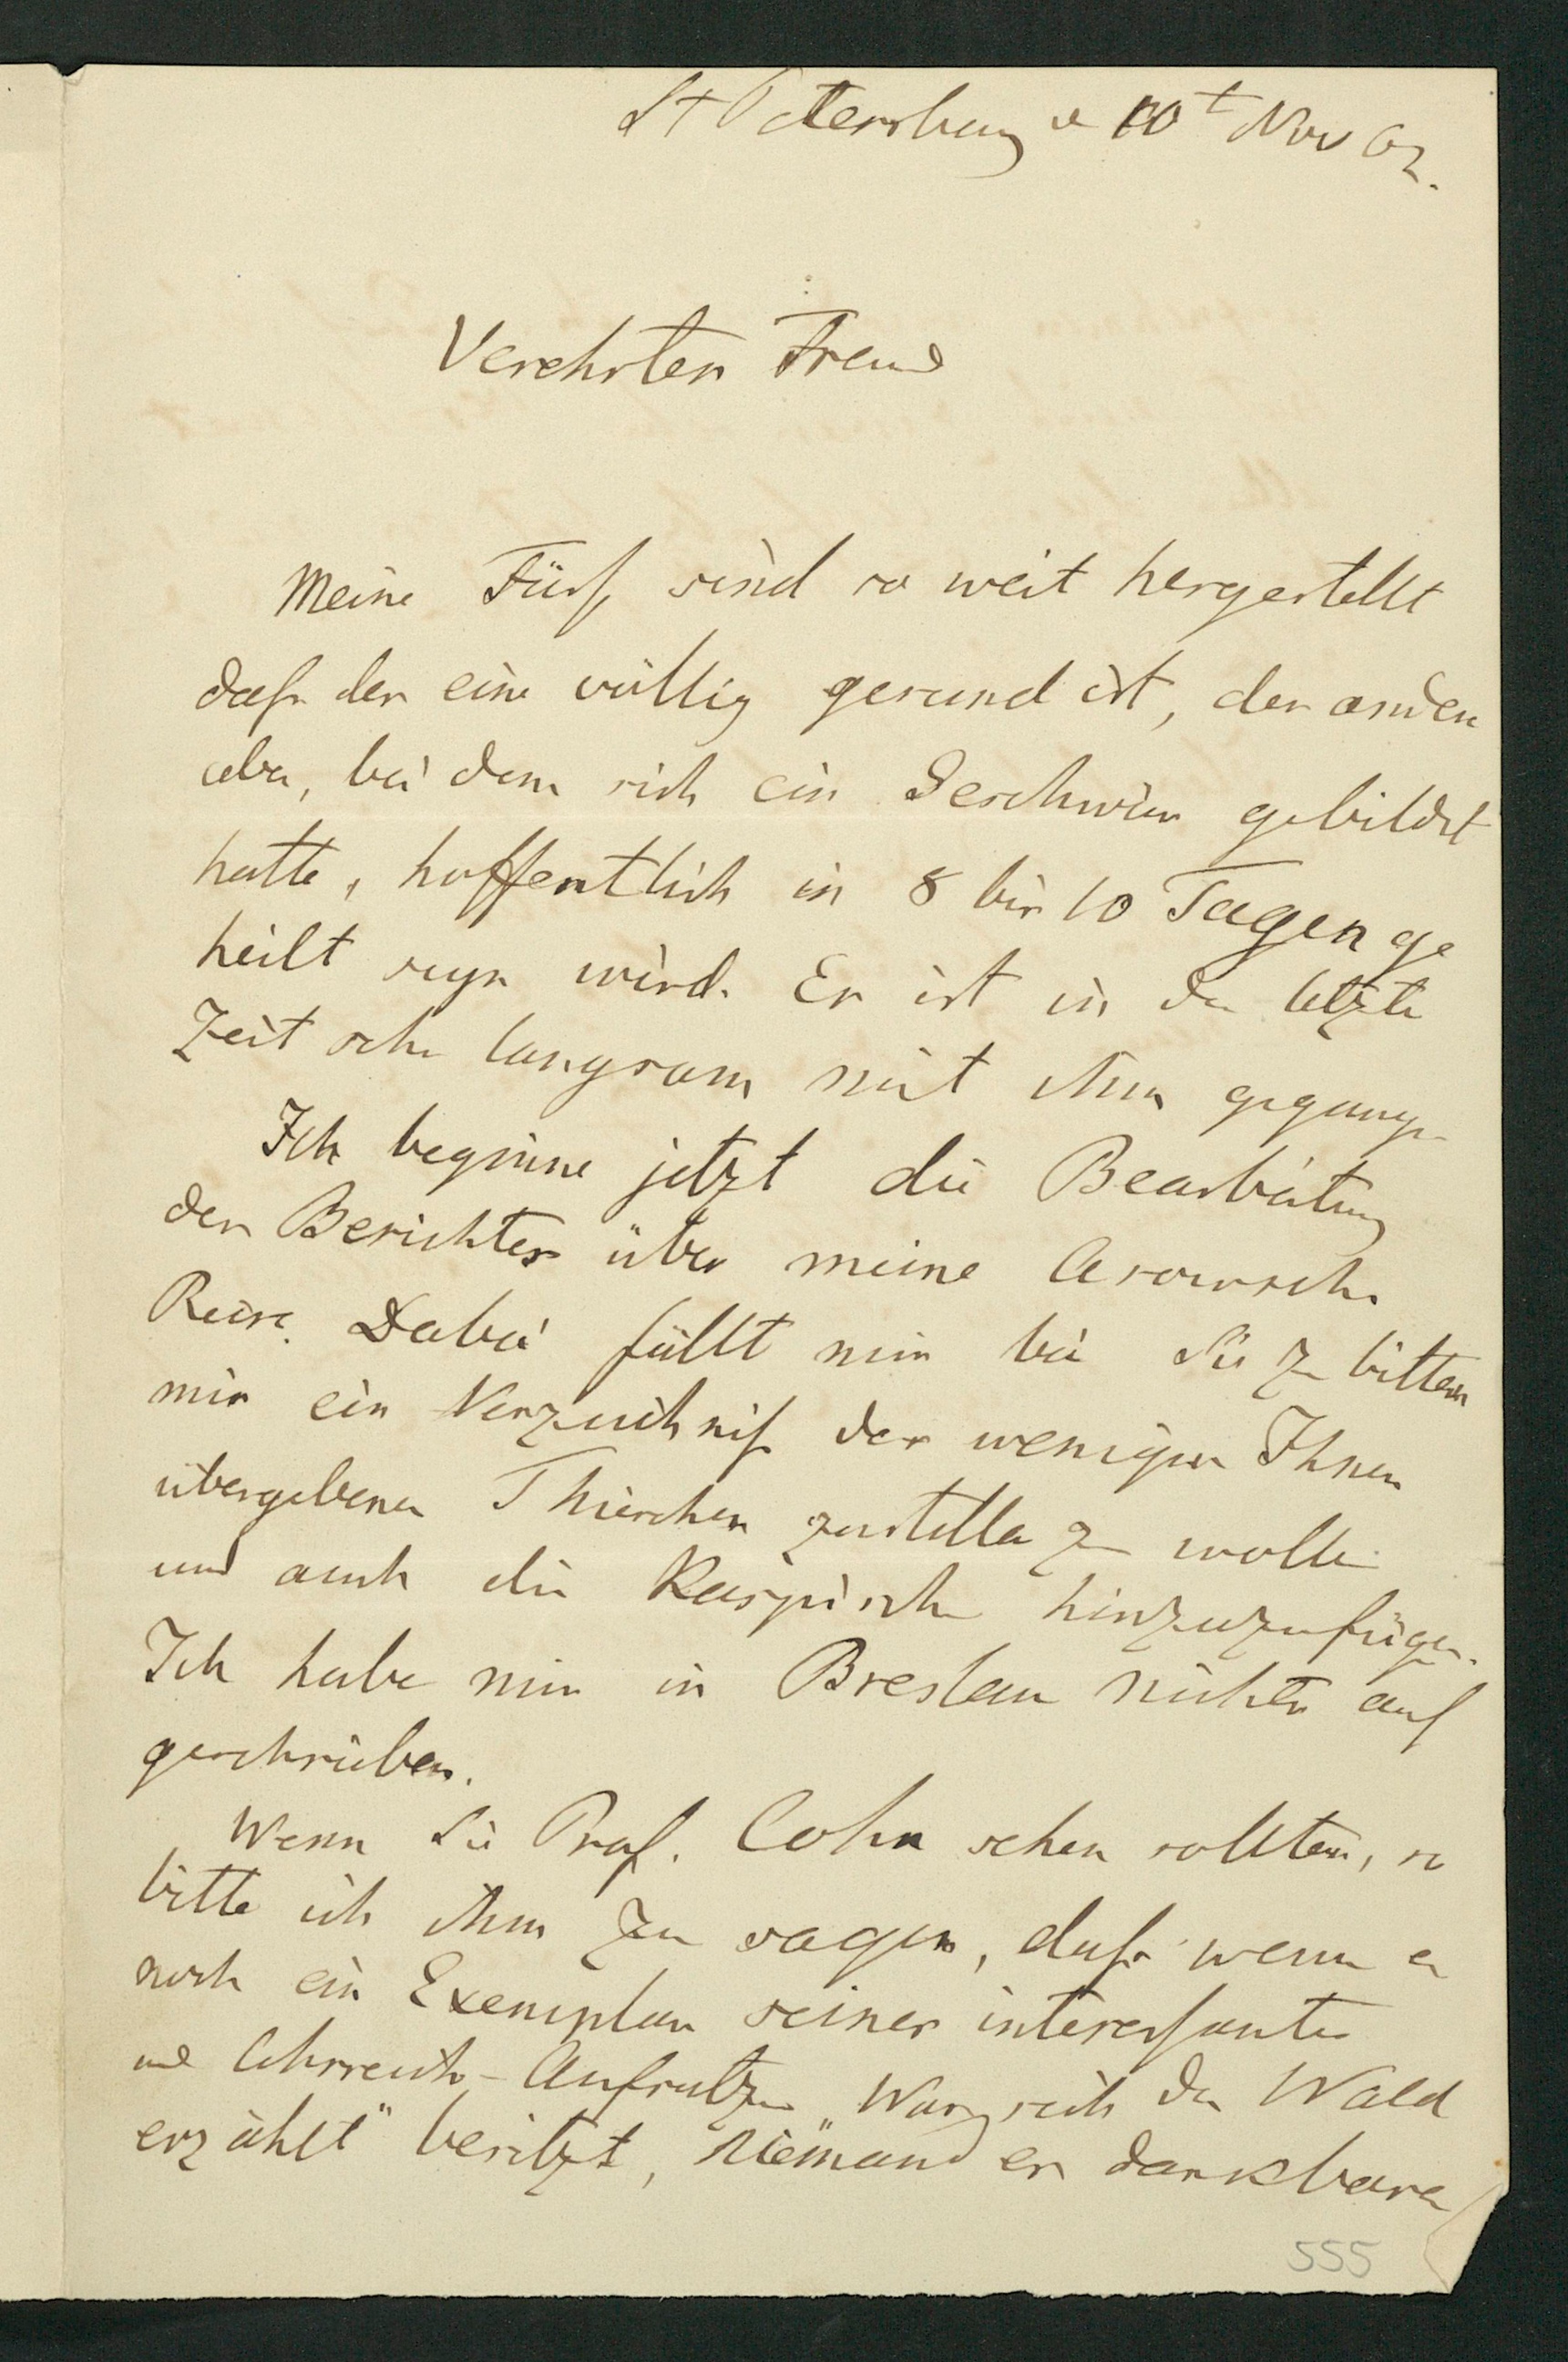 St Petersburg d 10t Nov 62.
Verehrter Freund
Meine Füße sind so weit hergestellt
daß der eine völlig gesund ist, der andere
aber, bei dem sich ein Geschwür gebildet
hatte, hoffentlich in 8 bis 10 Tagen ge
heilt seyn wird. Es ist in der letzten
Zeit sehr langsam mit ihm gegangen
Ich beginne jetzt die Bearbeitung
des Berichtes über meine Asowsche
Reise. Dabei fällt mir bei Sie zu bitten
mir ein Verzeichniß der wenigen Ihnen
übergebenen Thierchen zustellen zu wollen
und auch die Kaspischen hinzuzufügen.
Ich habe mir in Breslau nichts auf
geschrieben.
Wenn Sie Prof. Cohn sehen sollten, so
bitte ich ihm zu sagen, daß wenn er
noch ein Exemplar seines interessanten
und lehrreichen Aufsatzes „Was sich der Wald
erzählt" besitzt, Niemand es dankbarer
555